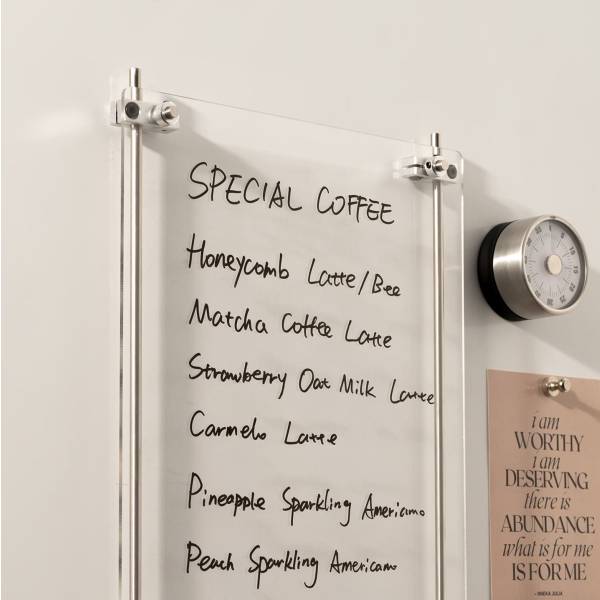 SPECIAL COFFEE
Honeycomb Latte/Bee
Matcha Coffee Latte
Strawberry Oat Milk Latte
Carmelo Latte
Pineapple Sparkling Americano
Peach Sparkling Americano
i am
WORTHY
i am
DESERVING
there is
ABUNDANCE
what is for me
IS FOR ME